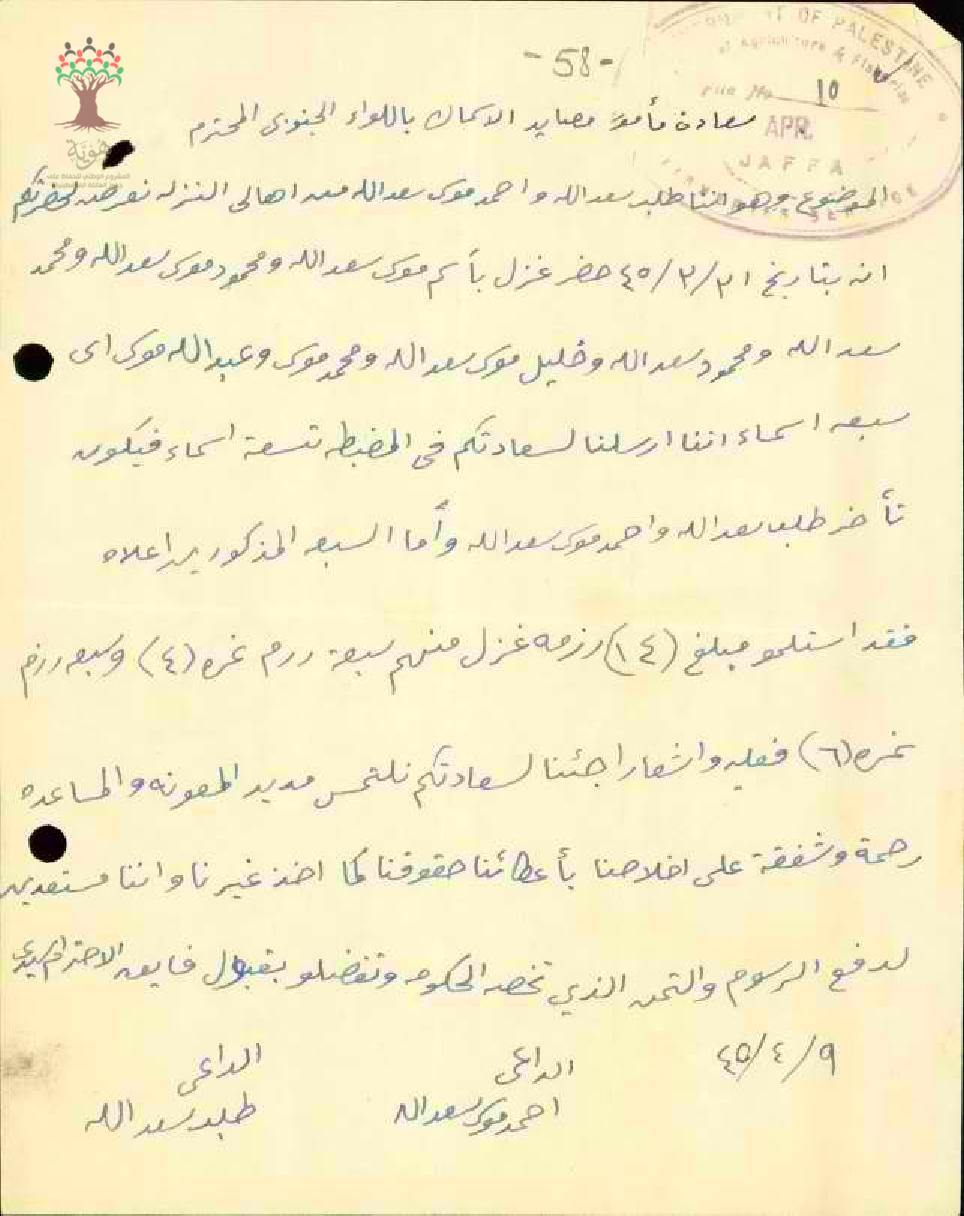 -58-
GOVERNMENT OF PALESTINE
of Agriculture & Fisheries
File No 10
APR.
JAFFA
هوية
سعادة مأمور مصايد الاسماك باللواء الجنوبي المحترم
الموضوع وهو اننا طلب سعدالله واحمد موسى سعدالله من اهالي النزله نعرض لحضرتكم
انه بتاريخ ٣١/٣/٤٥ حضر غزل بأسم موسى سعدالله ومحمود موسى سعدالله ومحمد
سعدالله ومحمود سعدالله وخليل موسى سعدالله ومحمد موسى وعبدالله موسى اي
سبعه اسماء اننا ارسلنا لسعادتكم في المضبطه تسعة اسماء فيكون
تأخر طلب سعدالله واحمد موسى سعدالله وأما السبعه المذكورين اعلاه
فقد استلمو مبلغ (١٤) رزمه غزل منهم سبعة رزم نمره (٤) وسبعه رزم
نمره (٦) فعليه واشعارا جئنا لسعادتكم نلتمس مديد المعونه والمساعده
رحمة وشفقة على اخلاصنا بأعطائنا حقوقنا كما اخذ غيرنا واننا مستعدين
لدفع الرسوم والثمن الذي تخصه الحكومه وتفضلو بقبول فايق الاحترام سيدي
٩/٤/٤٥
الداعي الداعي
احمد موسى سعدالله طلب سعد الله